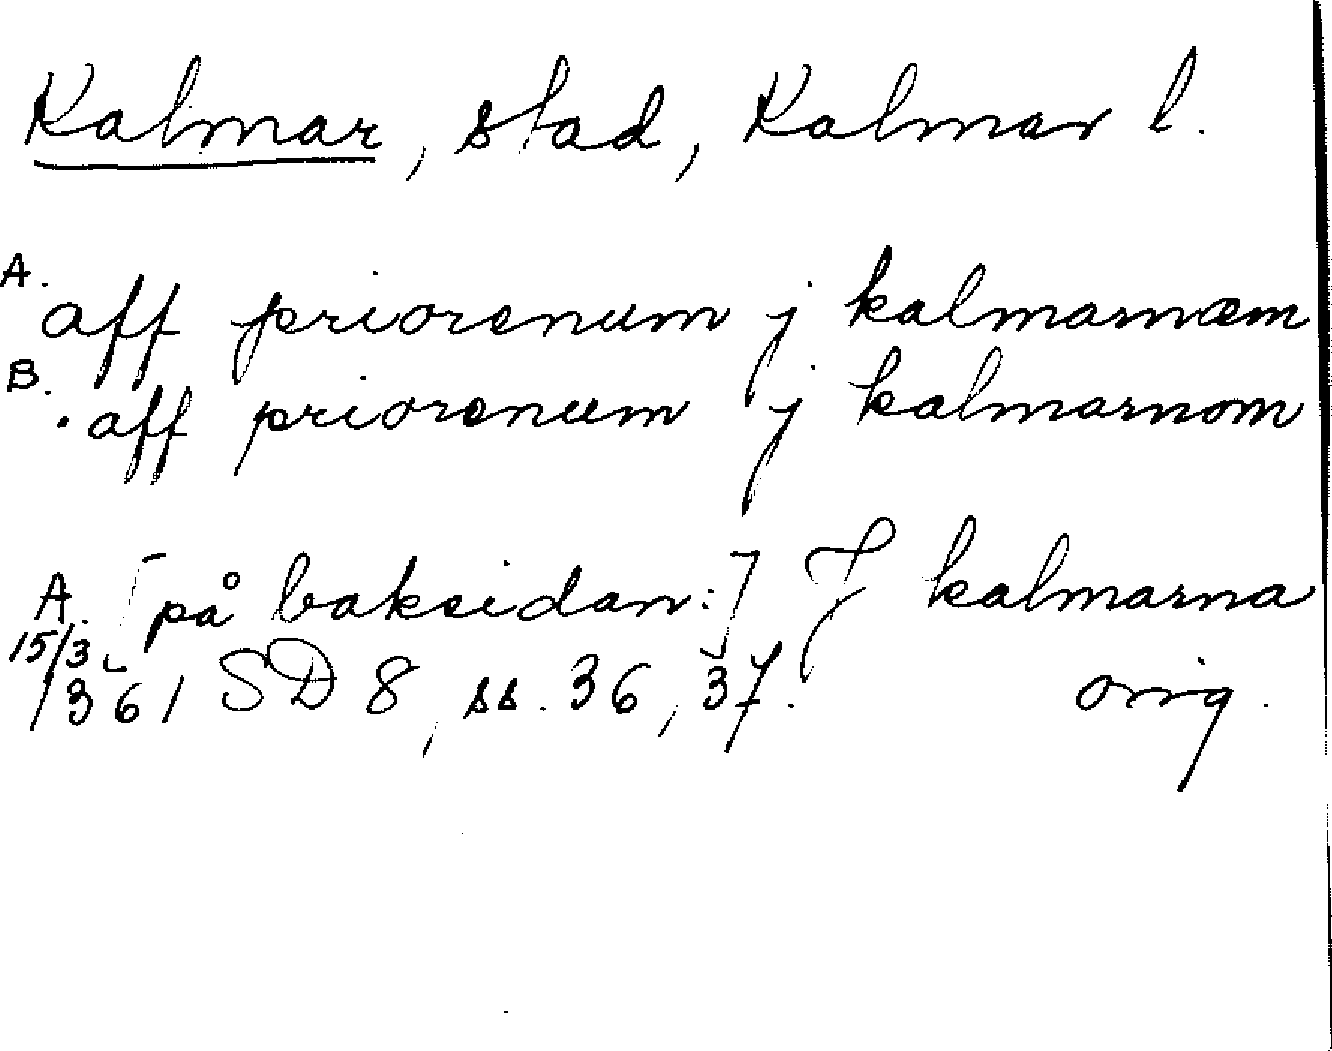 Kalmar, stad, Kalmar l.
A. aff priorenum j kalmarnæm
B. aff priorenum j kalmarnom
A. [på baksidan:] J kalmarna
15/3 1361 SD 8, ss. 36, 37. orig.